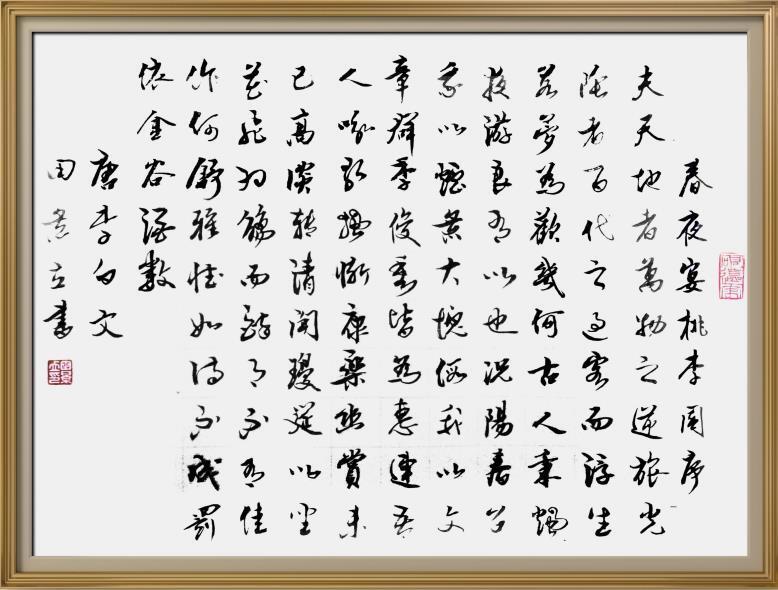 春夜宴桃李園序
夫天地者萬物之逆旅光
陰者百代之過客而浮生
若夢為歡幾何古人秉燭
夜游良有以也況陽春召
我以煙景大塊假我以文
章群季俊秀皆為惠連吾
人詠歌獨慚康樂幽賞未
已高談轉清開瓊筵以坐
花飛羽觴而醉月不有佳
作何舒雅懷如詩不成罰
依金谷酒數
唐李白文
田景立書